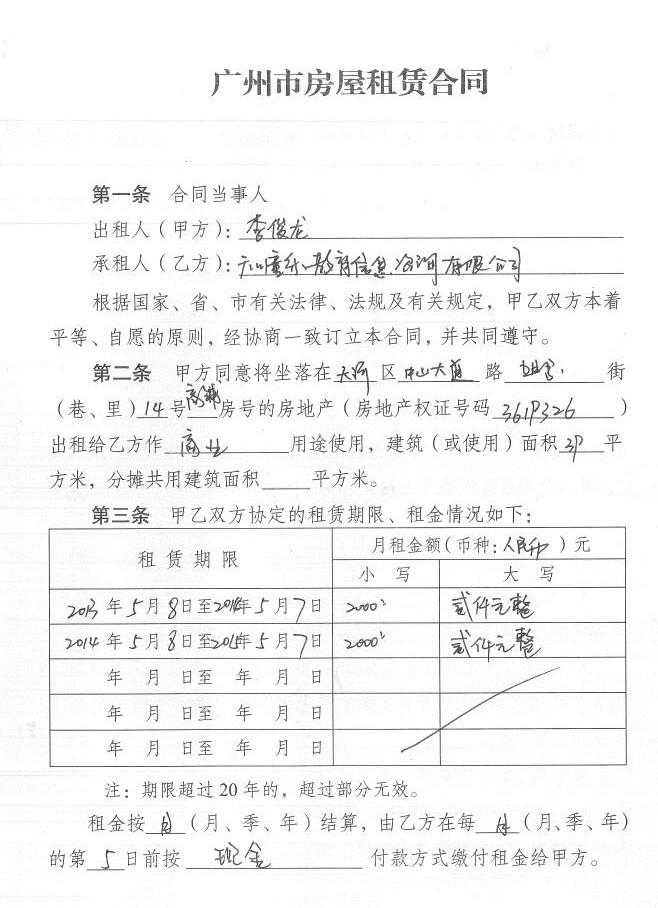 广州市房屋租赁合同
第一条 合同当事人
出租人（甲方）：李俊龙
承租人（乙方）：教育信息咨询有限公司
根据国家、省、市有关法律、法规及有关规定，甲乙双方本着
平等、自愿的原则，经协商一致订立本合同，并共同遵守。
第二条 甲方同意将坐落在天河区中山大道路 街
（巷、里）14号商铺房号的房地产（房地产权证号码3619326）
出租给乙方作商业用途使用，建筑（或使用）面积39平
方米，分摊共用建筑面积____平方米。
第三条 甲乙双方协定的租赁期限、租金情况如下：
租赁期限 月租金额（币种：人民币）元
小写 大写
2013年5月8日至2014年5月7日 2000 贰仟元整
2014年5月8日至2015年5月7日 2000 贰仟元整
年 月 日至 年 月 日
年 月 日至 年 月 日
年 月 日至 年 月 日
注：期限超过20年的，超过部分无效。
租金按月（月、季、年）结算，由乙方在每月（月、季、年）
的第5日前按现金付款方式缴付租金给甲方。